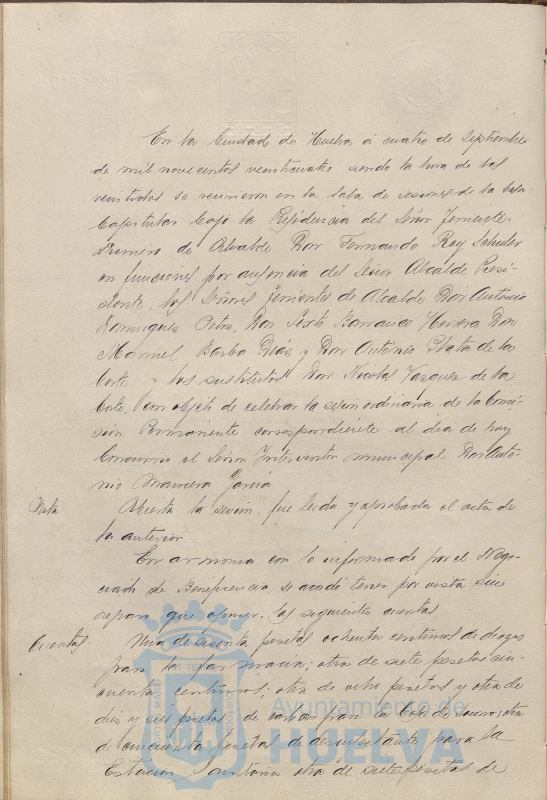 En la Ciudad de Huelva a cuatro de Septiembre
de mil novecientos veinticuatro siendo la hora de las
veintidos se reunieron en la Sala de sesiones de la Casa
Capitular bajo la Presidencia del Señor Teniente
primero de Alcalde Don Fernando Rey Schuler
en funciones por ausencia del Señor Alcalde Presi-
dente, los Señores Tenientes de Alcalde Don Antonio
Dominguez Ortiz, Don Sixto Barranco Herrera Don
Manuel Barba Diáz y Don Antonio Plata de la
Corte y los sustitutos Don Nicolas Vazquez de la
Corte, con objeto de celebrar la sesion ordinaria de la Comi-
sión Permanente correspondiente al dia de hoy
Concurrio el Señor Interventor municipal Don Anto-
nio García
Acta Abierta la sesion, fue leida y aprobada el acta de
la anterior
En armonia con lo informado por el Nego-
ciado de Beneficencia se acordó tener por vista sin
reparo que oponer, las siguientes cuentas
Cuentas. Una de sesenta pesetas ochenta centimos de drogas
para la farmacia; otra de siete pesetas cin-
cuenta centimos; otra de ocho pesetas y otra de
diez y seis pesetas de carbon para la Casa de Socorro; otra
de cincuenta pesetas de desinfectante para la
Estacion Sanitaria otra de siete pesetas de
Ayuntamiento de
HUELVA